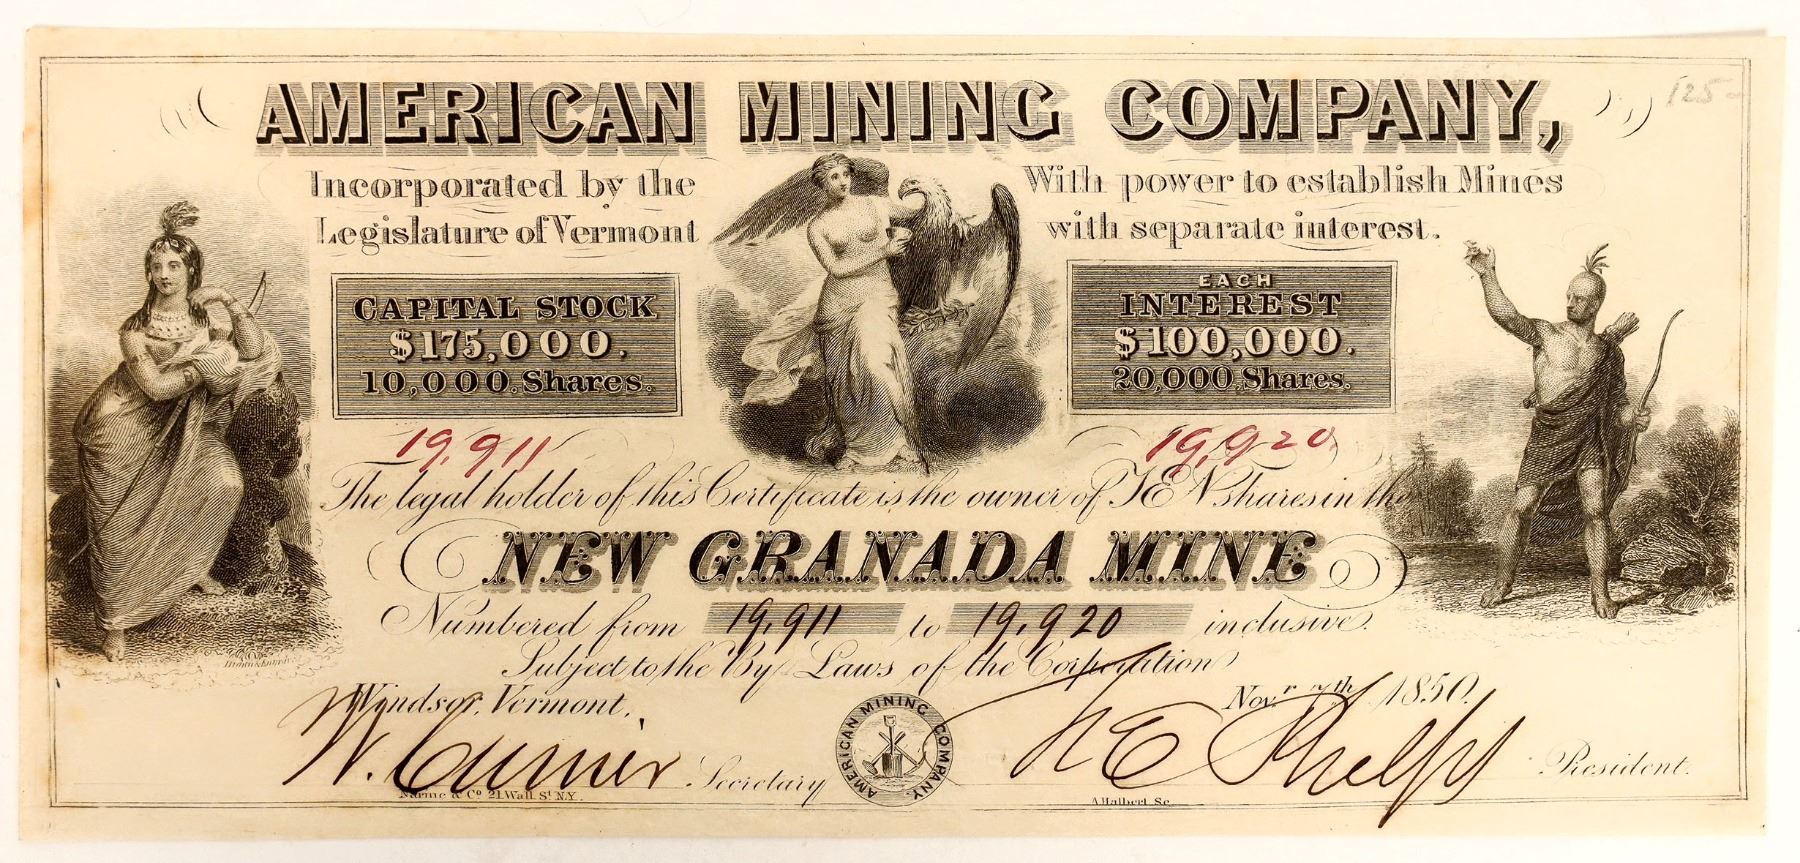 AMERICAN MINING COMPANY,
125-
Incorporated by the
Legislature of Vermont
With power to establish Mines
with separate interest.
CAPITAL STOCK
$175,000.
10,000 Shares.
EACH
INTEREST
$100,000.
20,000 Shares.
19,911
19,920
The legal holder of this Certificate is the owner of TEN shares in the
NEW GRANADA MINE
Numbered from 19,911 to 19,920 inclusive.
Subject to the By Laws of the Corporation
Windsor, Vermont,
Nov.r 7th 1850.
W. Currier Secretary
AMERICAN MINING COMPANY.
E Phelps President.
& Co 21 Wall St N.Y.
A Halbert Sc.